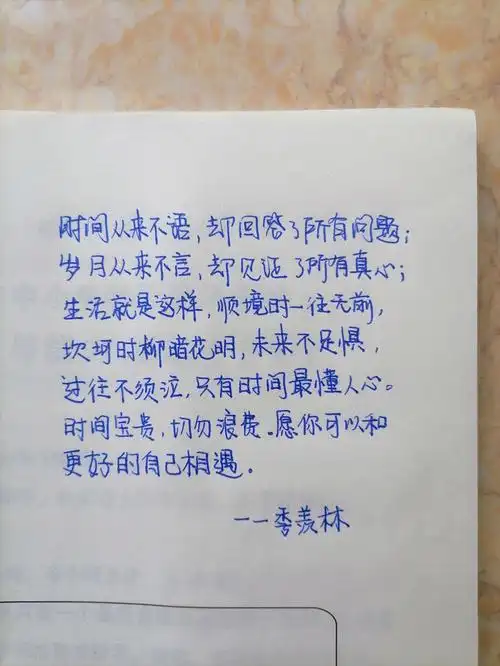 时间从来不语，却回答了所有问题；
岁月从来不言，却见证了所有真心；
生活就是这样，顺境时一往无前，
坎坷时柳暗花明，未来不足惧，
过往不须泣，只有时间最懂人心。
时间宝贵，切勿浪费。愿你可以和
更好的自己相遇。
——季羡林